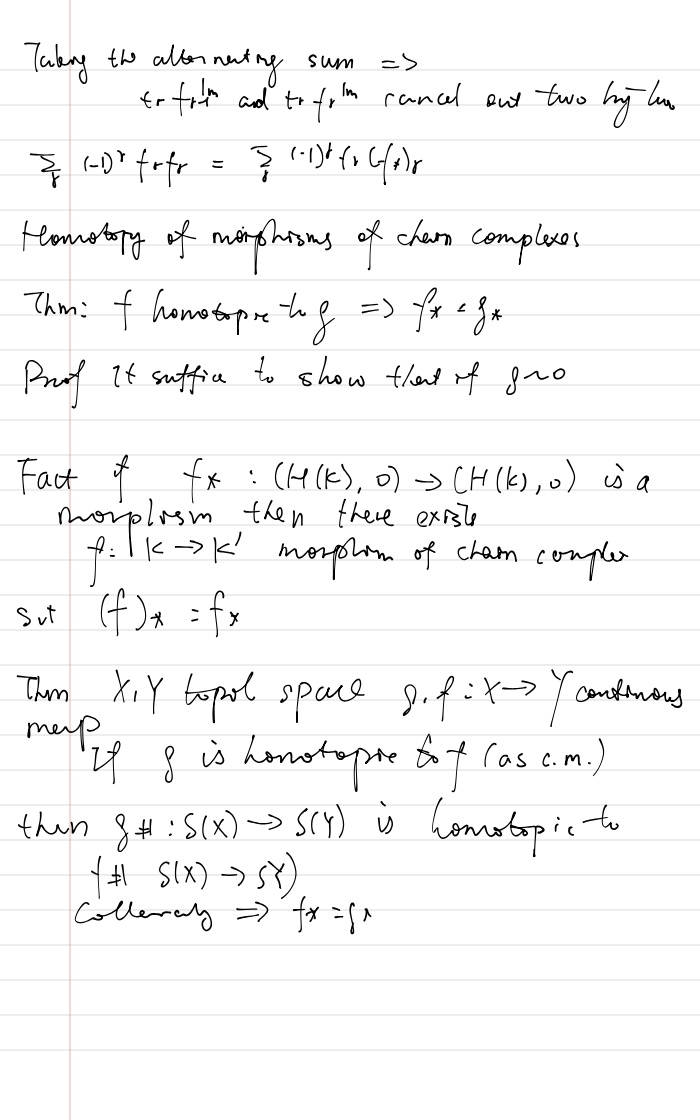 Taking the alternating sum =>
tr f_{r+1}^{Im} and tr f_r^{Im} cancel out two by two
∑_r (-1)^r tr f_r = ∑_r (-1)^r tr (f_*)_r
Homotopy of morphisms of chain complexes
Thm: f homotopic to g => f_* = g_*
Proof It suffice to show that if g ~ 0
Fact if f_* : (H(K), 0) → (H(K), 0) is a
morphism then there exists
f: K → K' morphism of chain complex
s.t (f)_* = f_*
Thm X, Y topol space g, f : X → Y continuous
map
If g is homotopic to f (as c.m.)
then g_# : S(X) → S(Y) is homotopic to
f_# S(X) → S(Y)
Corollary => f_* = g_*